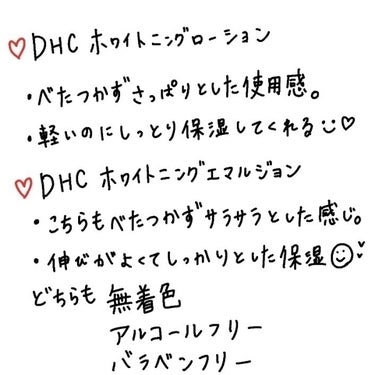 ♡DHC ホワイトニングローション
・べたつかずさっぱりとした使用感。
・軽いのにしっとり保湿してくれる☺♡
♡DHC ホワイトニングエマルジョン
・こちらもべたつかずサラサラとした感じ。
・伸びがよくてしっかりとした保湿☺
どちらも 無着色
アルコールフリー
パラベンフリー